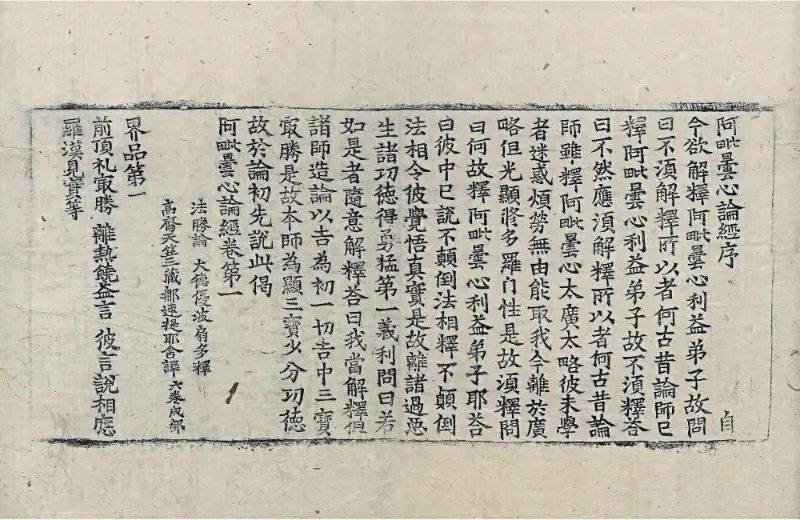 阿毗曇心論經序
今欲解釋阿毗曇心利益弟子故問
自
曰不湏解釋所以者何古昔論師已
釋阿毗曇心利益弟子故不湏釋荅
曰不然應湏解釋所以者何古昔論
師雖釋阿毗曇心太廣太略彼未學
者迷惑煩勞無由能取我今離於廣
略但光顯修多羅門性是故湏釋問
曰何故釋阿毗曇心利益弟子耶荅
曰彼中已說不顛倒法相釋不顛倒
法相令彼覺悟真實是故離諸過惡
生諸功德得勇猛第一義利問曰若
如是者隨意解釋荅曰我當解釋但
諸師造論以吉為初一切吉中三寶
㝡勝是故本師為顯三寶少分功德
故於論初先說此偈
阿毗曇心論經卷第一
法勝論 大德優波扇多釋
高齊天竺三藏那連提耶舍譯 六卷成部
界品第一
前頂礼㝡勝 離熱饒益言 彼言說相應
羅漢見實等